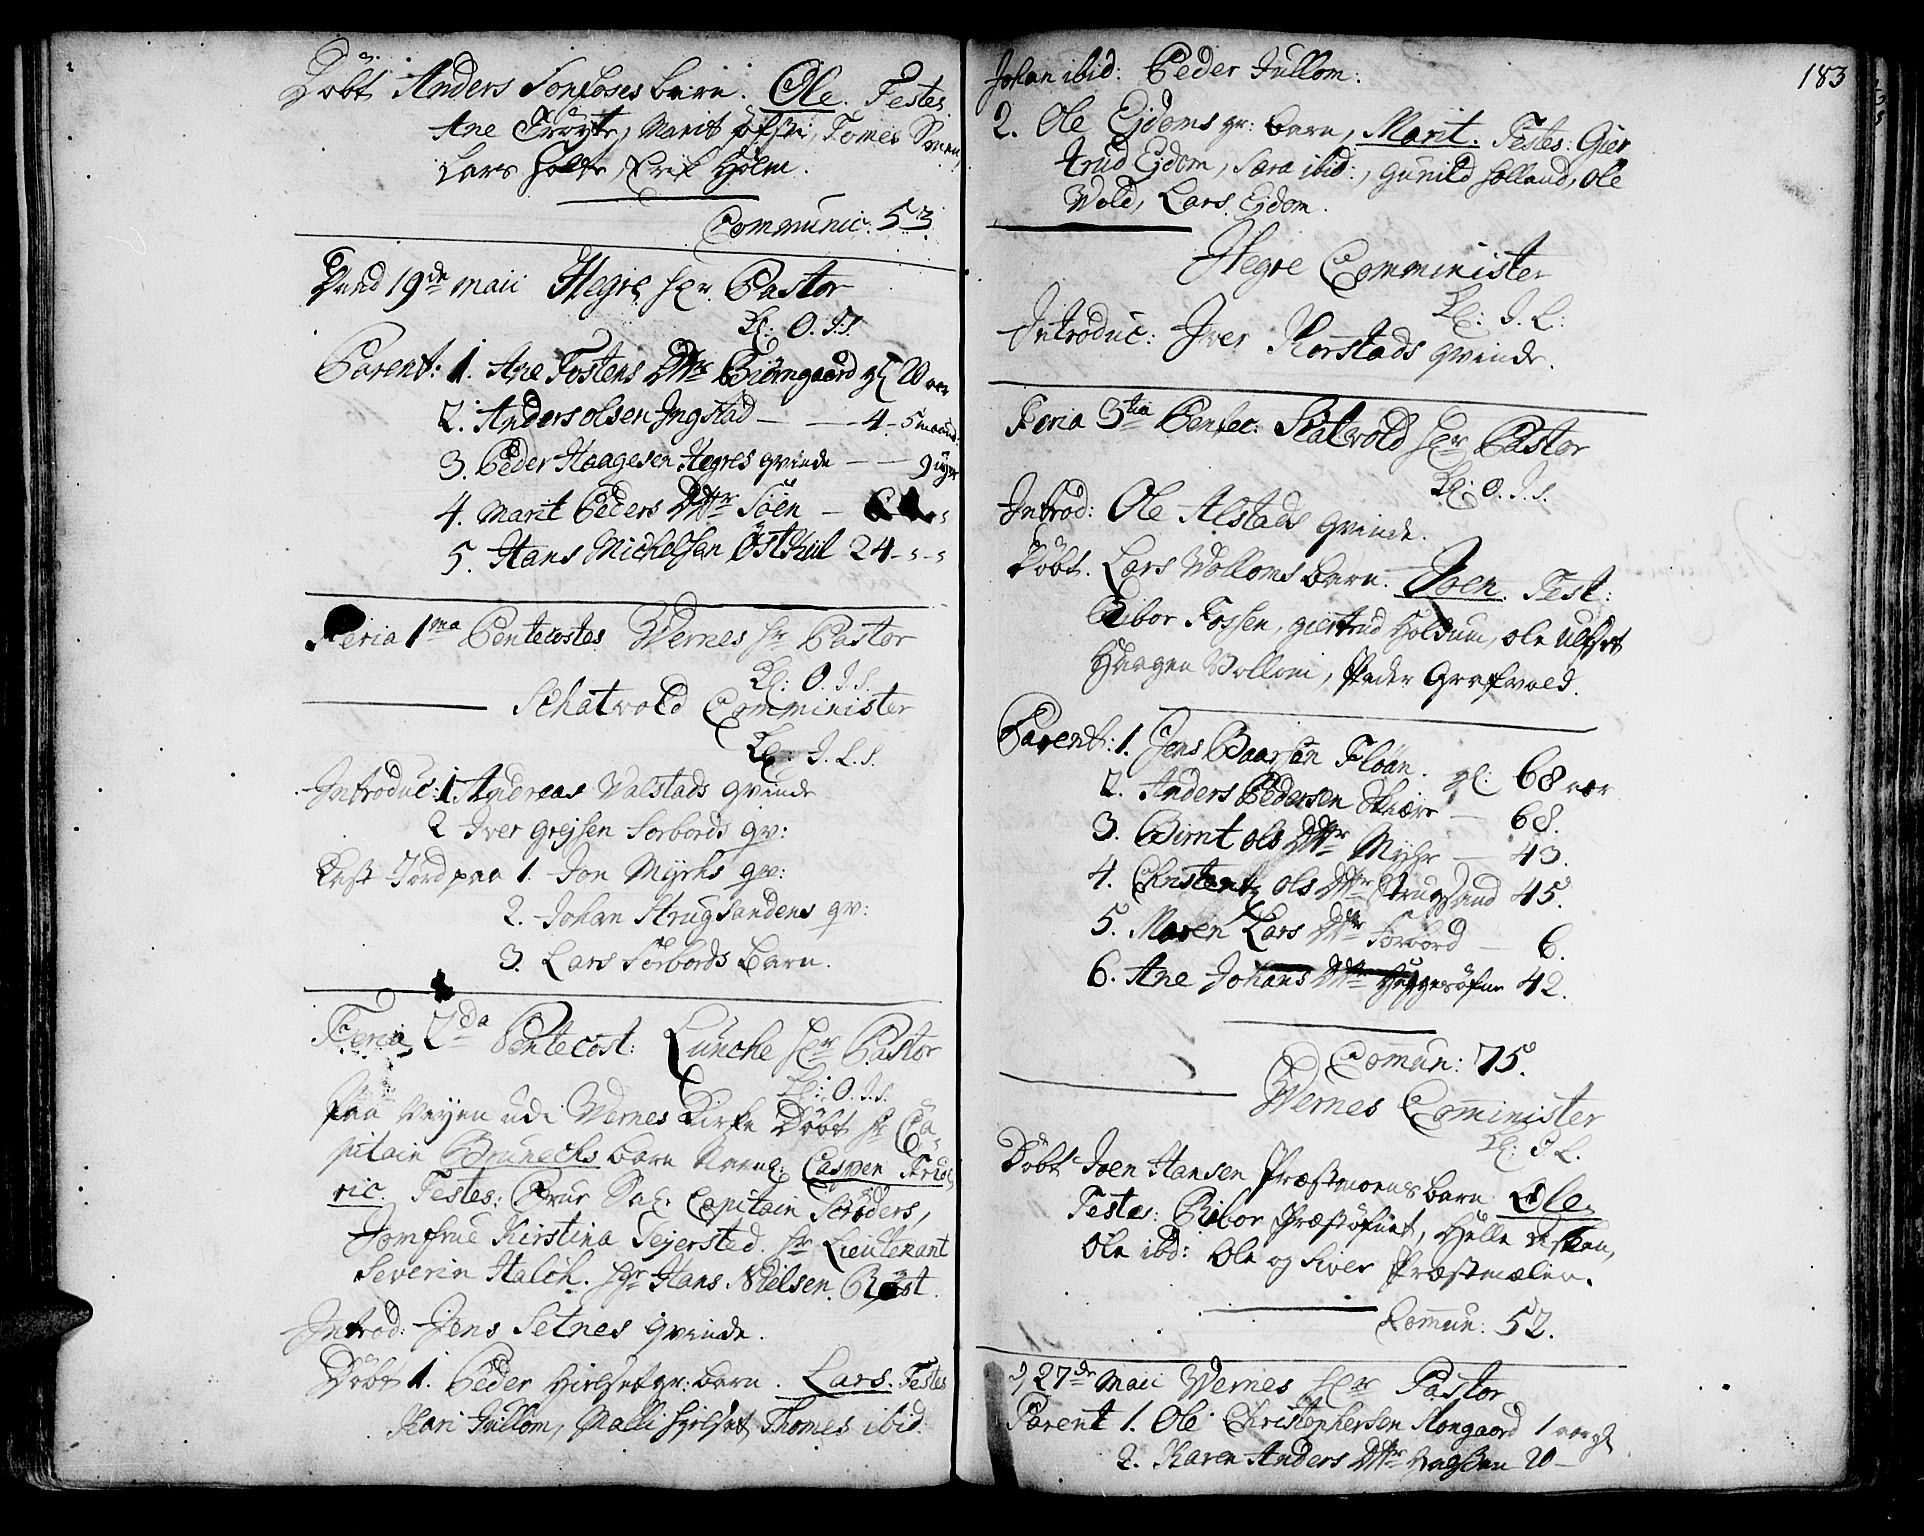 Döbt Anders Sonfloses barn. Ole. Testes
Ane Marit Tomes
Lars Erik Holm.
Communic: 53.
19de Maii Hegre Hr. Pastor
Kl: O. I. S.
Parent: 1. Ane Tostens Dtr Biörngaard gl 20 aar
2. Anders olsen Ingstad — — 4 - 5 maand:
3. Peder Haagesen Hegres qvinde — — 9 uger
4. Marit Peders Dttr Söen —
5. Hans Michelsen Östkiil 24 - " - "
Feria 1ma Pentecostes Wernes Hr Pastor
Kl: O. I. S.
Schatvold Comminister
Kl: I. L. S.
Introduc: 1. Andreas Valstads qvinde
2 Iver Grejsen Forbords qv:
Kast Jord paa 1. Jon Myrhs qv:
2. Johan Strugsandens qv:
3. Lars Forbords Barn.
Feria 2da Pentecost: Luncke Hr Pastor
Kl: O. I. S.
Paa Veyen udi Wernes Kirke Döbt Hr Ca-
pitain Brunechs barn Casper Frid-
ric. Testes: Frue Sal. Capitain Schöders,
Jomfrue Kirstina Tejersted. Hr Lieutenant
Severin Halch. Hr Hans Nielsen
Introd: Jens Setnes qvinde.
Döbt 1. Peder Hielset gr: barn. Lars. Testes
Kari Jullom, Malli Hielset, Thomes ibid.
183
Johan ibid: Peder Jullom.
2. Ole Ejdoms gr: barn, Marit. Testes: Gier
trud Ejdom, Sara ibid:, Gunild Holland, Ole
Wold, Lars Ejdom.
Hegre Comminister
Kl: I. L:
Introduc: Iver Korstads qvinde.
Feria 3tia Pentec: Skatvold Hr Pastor
Kl: O. I. S.
Introd: Ole Alstads qvinde.
Döbt. Lars Wolloms barn. Joen. Test:
Ribor Fossen, giertrud Holdum, ole
Haagen Vollom, Peder
Parent: 1. Jens Baarsen Floan. gl: 68 aar
2. Anders Pedersen Skiære — 68.
3. Birnt ols Dttr Myhr — 43.
4. Christentz ols Dttr Strugsand 45.
5. Maren Lars Dttr Forbord — 6.
6. Ane Johans Dttr 42.
Comun: 75.
Wernes Cominister
Kl: I L.
Döbt Joen Hansen Præstmoens barn Ole.
Testes: Ribor Præstöfnet, Helle
Ole ibd: Ole og Siver Præstmælen.
Comun: 52.
27de Maii Wernes Hr Pastor
Parent 1. Ole Christophersen Stongaard 1 aar gl
2. Karen Anders Dttr 20 —